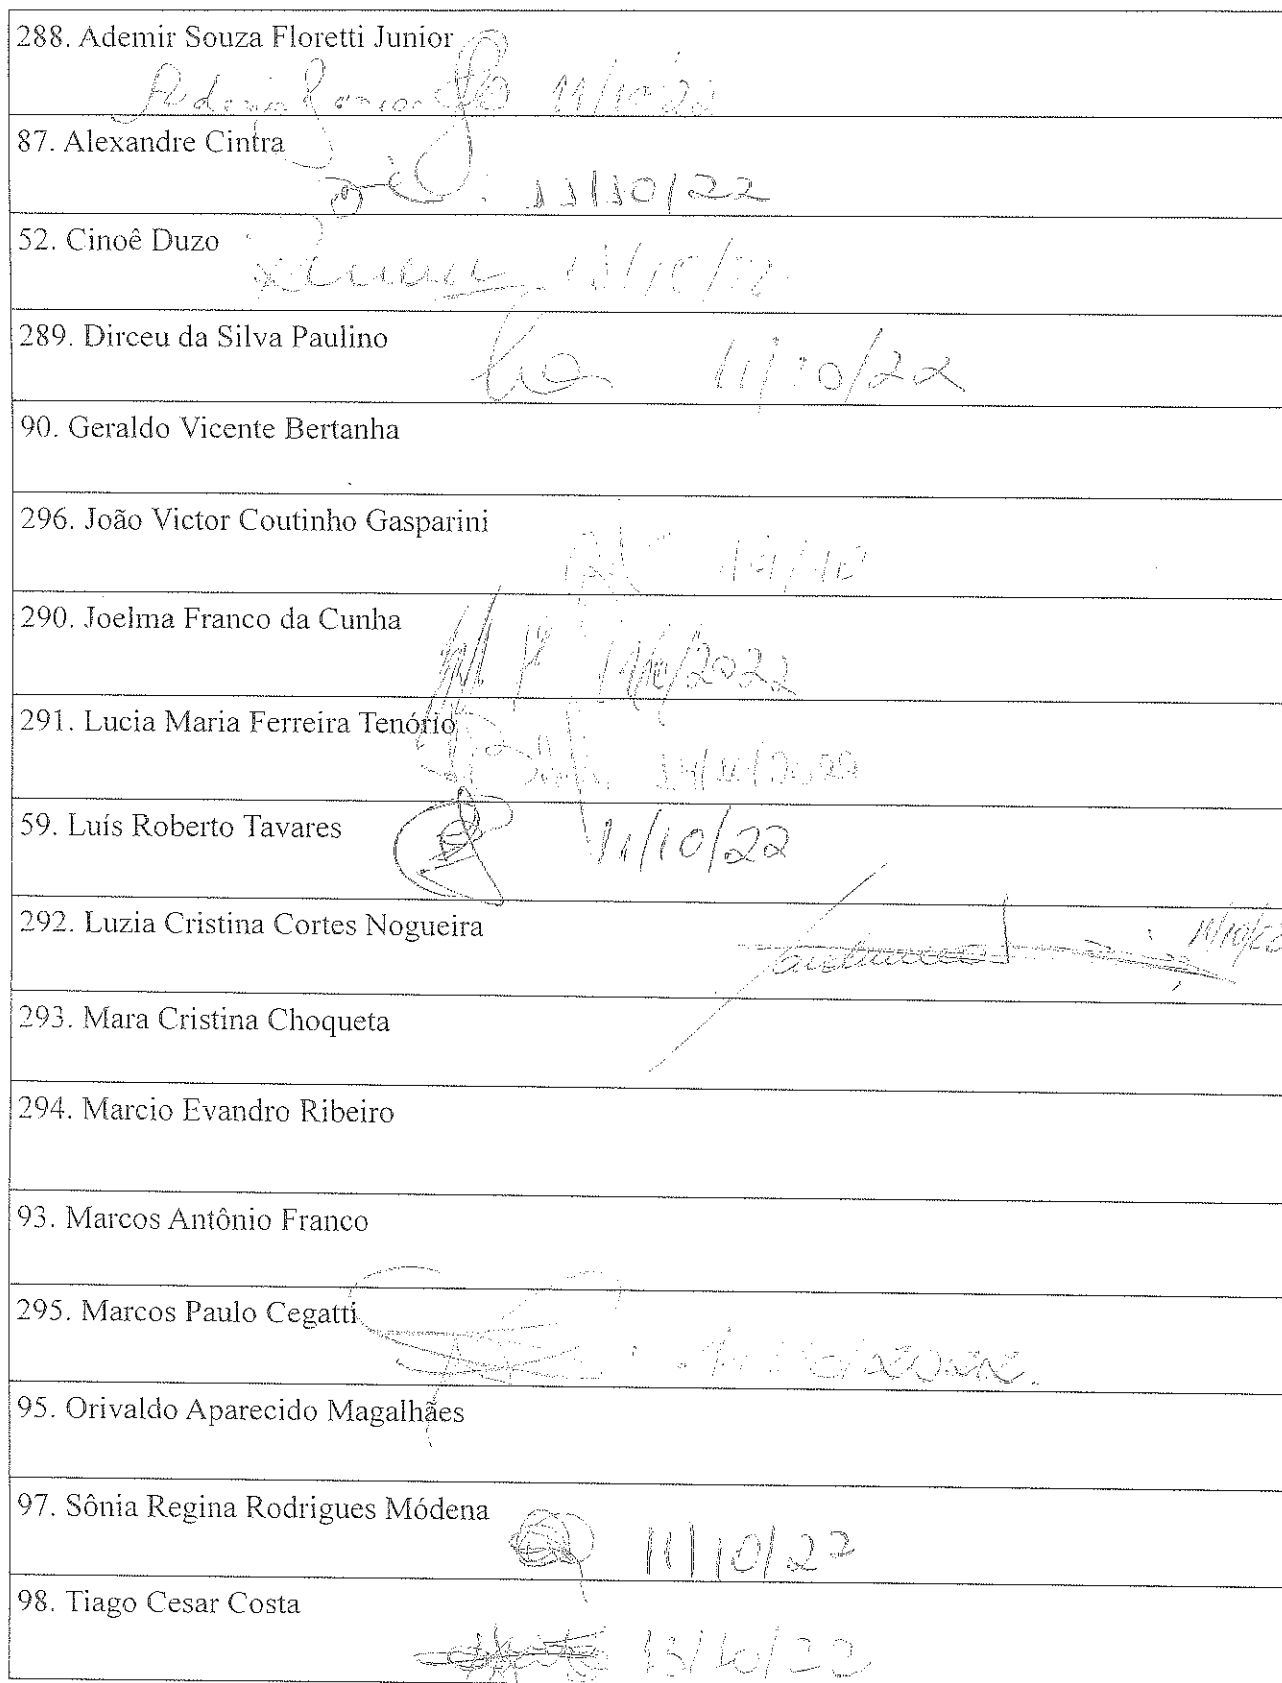 288. Ademir Souza Floretti Junior
11/10/22
87. Alexandre Cintra
11/10/22
52. Cinoê Duzo
289. Dirceu da Silva Paulino
11/10/22
90. Geraldo Vicente Bertanha
296. João Victor Coutinho Gasparini
290. Joelma Franco da Cunha
11/10/2022
291. Lucia Maria Ferreira Tenório
59. Luís Roberto Tavares
11/10/22
292. Luzia Cristina Cortes Nogueira
11/10/22
293. Mara Cristina Choqueta
294. Marcio Evandro Ribeiro
93. Marcos Antônio Franco
295. Marcos Paulo Cegatti
95. Orivaldo Aparecido Magalhães
97. Sônia Regina Rodrigues Módena
11/10/22
98. Tiago Cesar Costa
13/10/22